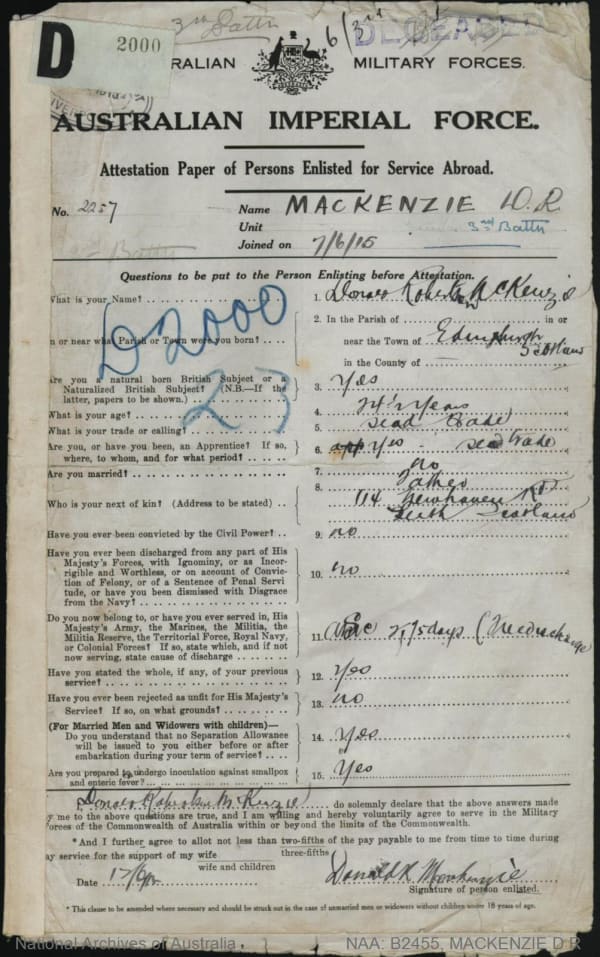 3rd Battn 6/3rd DECEASED
D 2000
RALIAN MILITARY FORCES.
AUSTRALIAN IMPERIAL FORCE.
Attestation Paper of Persons Enlisted for Service Abroad.
No. 2257 Name MACKENZIE D. R.
Unit 3rd Battn
Joined on 7/6/15
Questions to be put to the Person Enlisting before Attestation.
What is your Name? 1. Donald Robertson McKenzie
2. In the Parish of in or
n or near what Parish or Town were you born? near the Town of Edinburgh
Scotland
in the County of
D2000
23
Are you a natural born British Subject or a
Naturalized British Subject? (N.B.—If the
latter, papers to be shown.) 3. Yes
What is your age? 4. 24½ years
What is your trade or calling? 5. Seed Trade
Are you, or have you been, an Apprentice? If so,
where, to whom, and for what period? 6. Yes Seed Trade
Are you married? 7. No
8. Father
Who is your next of kin? (Address to be stated) 114 Newhaven Rd
Leith Scotland
Have you ever been convicted by the Civil Power? 9. no
Have you ever been discharged from any part of His
Majesty's Forces, with Ignominy, or as Incor-
rigible and Worthless, or on account of Convic-
tion of Felony, or of a Sentence of Penal Servi
tude, or have you been dismissed with Disgrace
from the Navy? 10. no
Do you now belong to, or have you ever served in, His
Majesty's Army, the Marines, the Militia, the
Militia Reserve, the Territorial Force, Royal Navy,
or Colonial Forces? If so, state which, and if not
now serving, state cause of discharge 11. 75 days
Have you stated the whole, if any, of your previous
service? 12. Yes
Have you ever been rejected as unfit for His Majesty's
Service? If so, on what grounds? 13. no
(For Married Men and Widowers with children)—
Do you understand that no Separation Allowance
will be issued to you either before or after
embarkation during your term of service? 14. Yes
Are you prepared to undergo inoculation against smallpox
and enteric fever? 15. Yes
I, Donald Robertson McKenzie do solemnly declare that the above answers made
y me to the above questions are true, and I am willing and hereby voluntarily agree to serve in the Military
orces of the Commonwealth of Australia within or beyond the limits of the Commonwealth.
*And I further agree to allot not less than two-fifths of the pay payable to me from time to time during
three-fifths
ay service for the support of my wife
wife and children
Date Donald R Mackenzie
Signature of person enlisted.
* This clause to be amended where necessary and should be struck out in the case of unmarried men or widowers without children under 18 years of age.
National Archives of Australia NAA: B2455, MACKENZIE D R